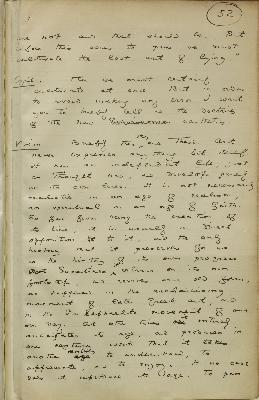 52
are not and that should be. But
before this comes to pass we must
cultivate the lost art of Lying"
Cyril. Then we must certainly
cultivate it at once. But in order
to avoid making any error I want
you to tell me the doctrines
of the new aesthetics.
Vivian Briefly they are these. Art
never expresses anything but itself
It has an independent life, just
as Thought has, and develops purely
on its own lines. It is not necessarily
realistic in an age of realism,
nor spiritual in an age of faith.
So far from being the creation of
its time, it is usually in direct
opposition to it, and the only
history that it preserves for us
is the history of its own progress
Sometimes it returns on its own
footsteps, and revives some old form,
as happened in the archaistic
movement of late Greek art, and
in the pre Raphaelite movement of our
own day. At other times it entirely
anticipates its age, and produces in
one century work that it takes
another century to understand, to
appreciate, and to enjoy. In no case
does it reproduce its age. To pass